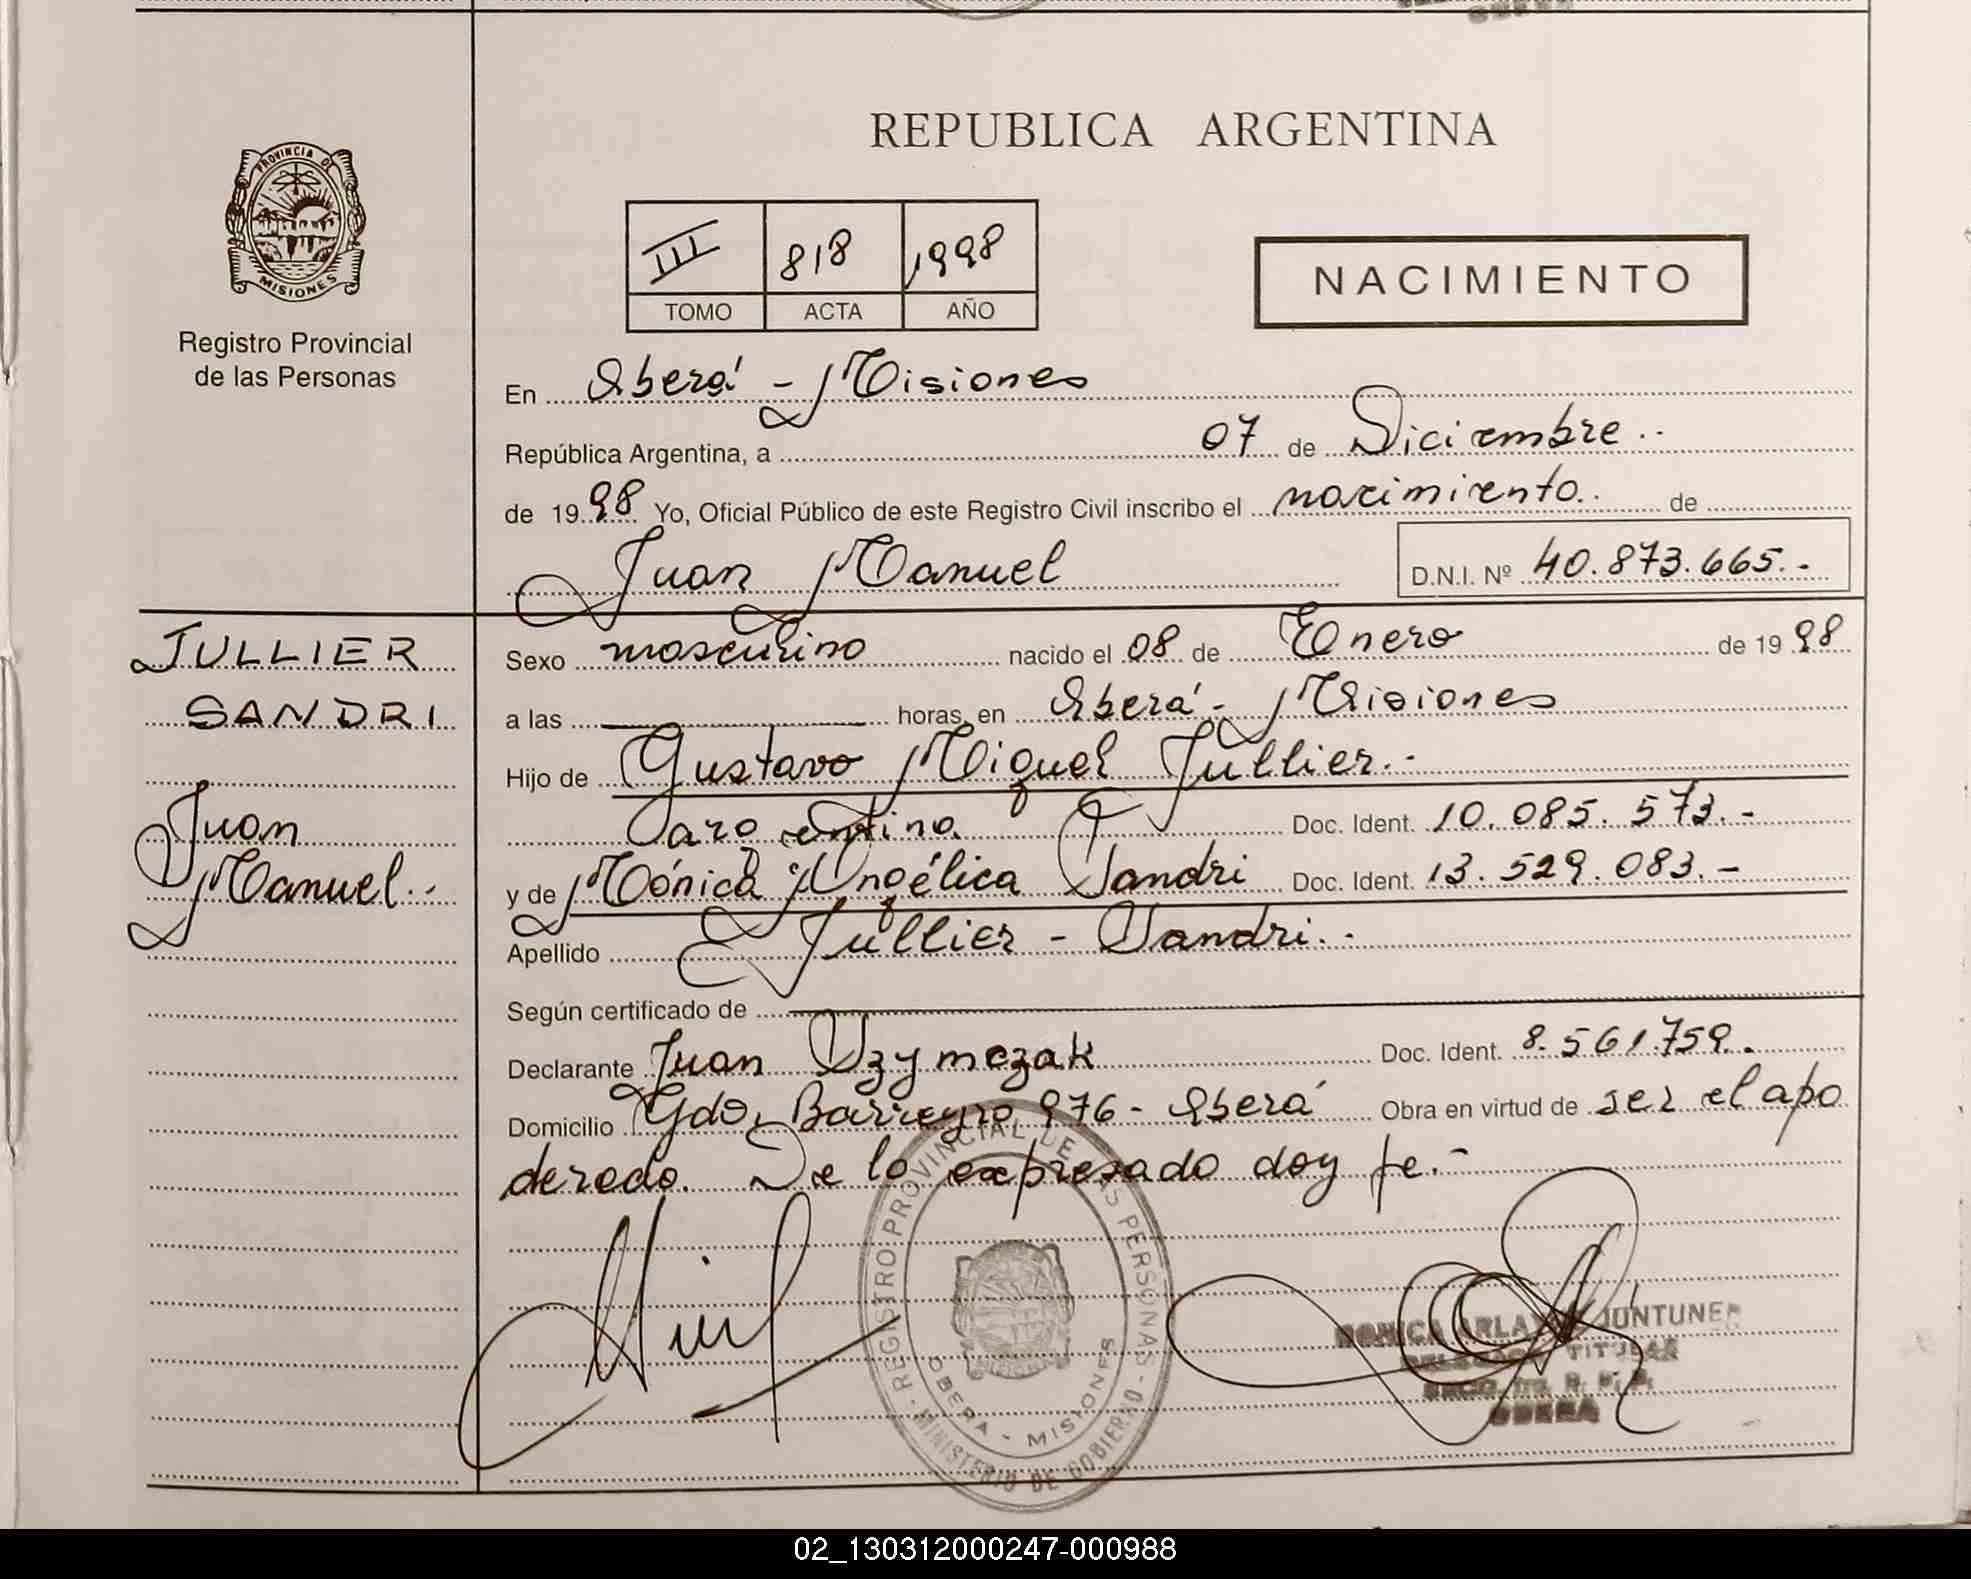 REPUBLICA ARGENTINA
PROVINCIA DE
MISIONES
Registro Provincial
de las Personas
III 818 1998
TOMO ACTA AÑO
NACIMIENTO
En Oberá - Misiones
República Argentina, a 07 de Diciembre
de 1998 Yo, Oficial Público de este Registro Civil inscribo el nacimiento de
Juan Manuel D.N.I. Nº 40.873.665.-
JULLIER
SANDRI
Juan
Manuel
Sexo masculino nacido el 08 de Enero de 1998
a las horas, en Oberá - Misiones
Hijo de Gustavo Miguel Jullier.-
Doc. Ident. 10.085.573.-
y de Mónica Angélica Sandri Doc. Ident. 13.529.083.-
Apellido Jullier - Sandri.-
Según certificado de
Declarante Juan Doc. Ident. 8.561.759.
Domicilio Gdor Barreyro 976 - Oberá Obra en virtud de ser el apo
derado. De lo expresado doy fe.-
REGISTRO PROVINCIAL DE LAS PERSONAS - MINISTERIO DE GOBIERNO
OBERA - MISIONES
MONICA
TITULAR
OBERA
02_130312000247-000988